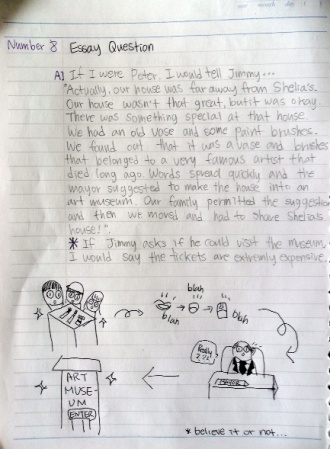 Number 8 Essay Question
A) If I were Peter, I would tell Jimmy...
"Actually, our house was far away from Shelia's.
Our house wasn't that great, but it was okay.
There was something special at that house.
We had an old vase and some paint brushes.
We found out that it was a vase and brushes
that belonged to a very famous artist that
died long ago. Words spread quickly and the
mayor suggested to make the house into an
art museum. Our family permitted the suggestion
and then we moved and had to share Shelia's
house!".
* If Jimmy asks if he could visit the museum,
I would say the tickets are extremly expensive.
blah
blah
blah
Really
ART
MUSE-
UM
ENTER
* believe it or not...